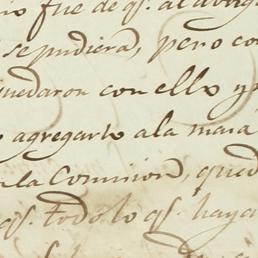 fue de qᵉ. al abrig
se pudiera, pero co
quedaron con ello y
agregarlo a la masa
la Comision, qued
qᵉ. todo lo qᵉ. haya